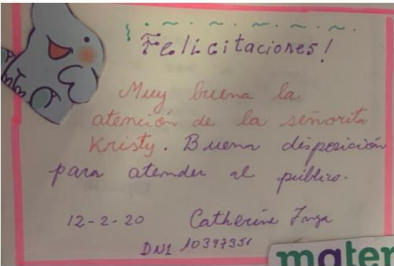 Felicitaciones!
Muy buena la
atención de la señorita
Kristy. Buena disposición
para atender al público.
12-2-20 Catherine
DNI
mater